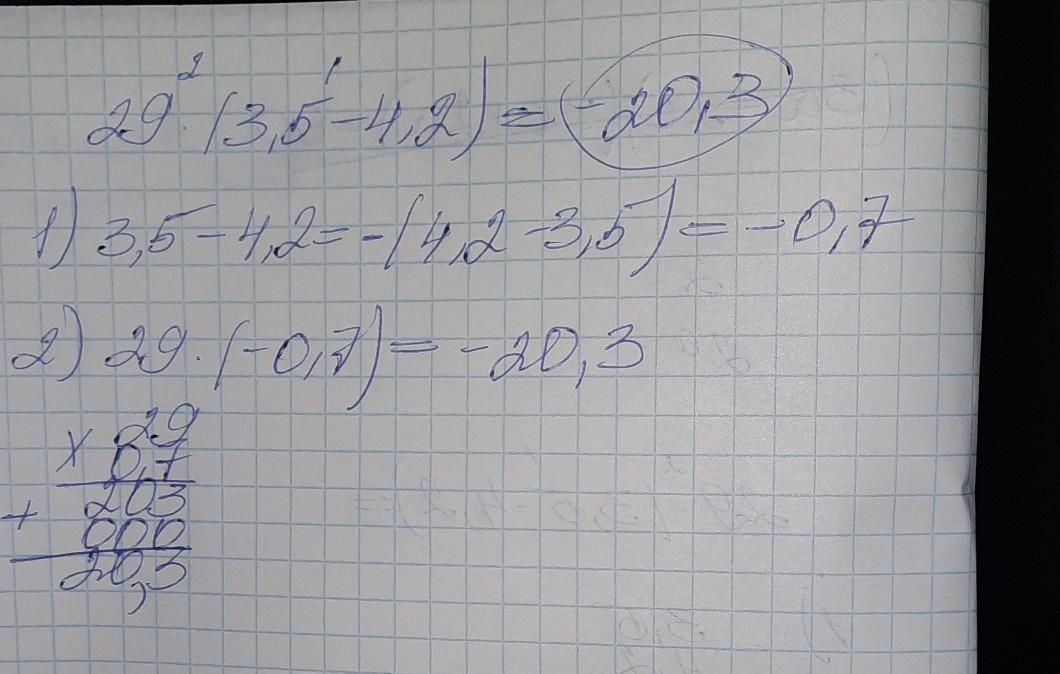 2 1
29 · (3,5 - 4,2) = -20,3
1) 3,5 - 4,2 = -(4,2 - 3,5) = -0,7
2) 29 · (-0,7) = -20,3
x 29
0,7
203
+ 000
20,3